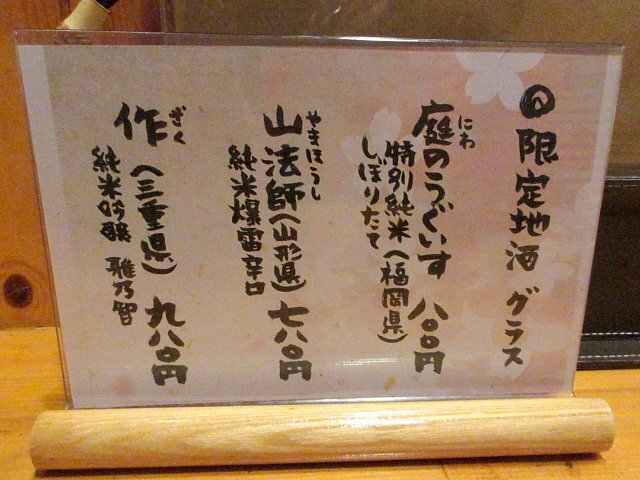 ◎限定地酒 グラス
庭のうぐいす 八〇〇円
にわ
特別純米(福岡県)
しぼりたて
山法師(山形県) 七八〇円
やまほうし
純米爆雷辛口
作(三重県) 九八〇円
ざく
純米吟醸 雅乃智